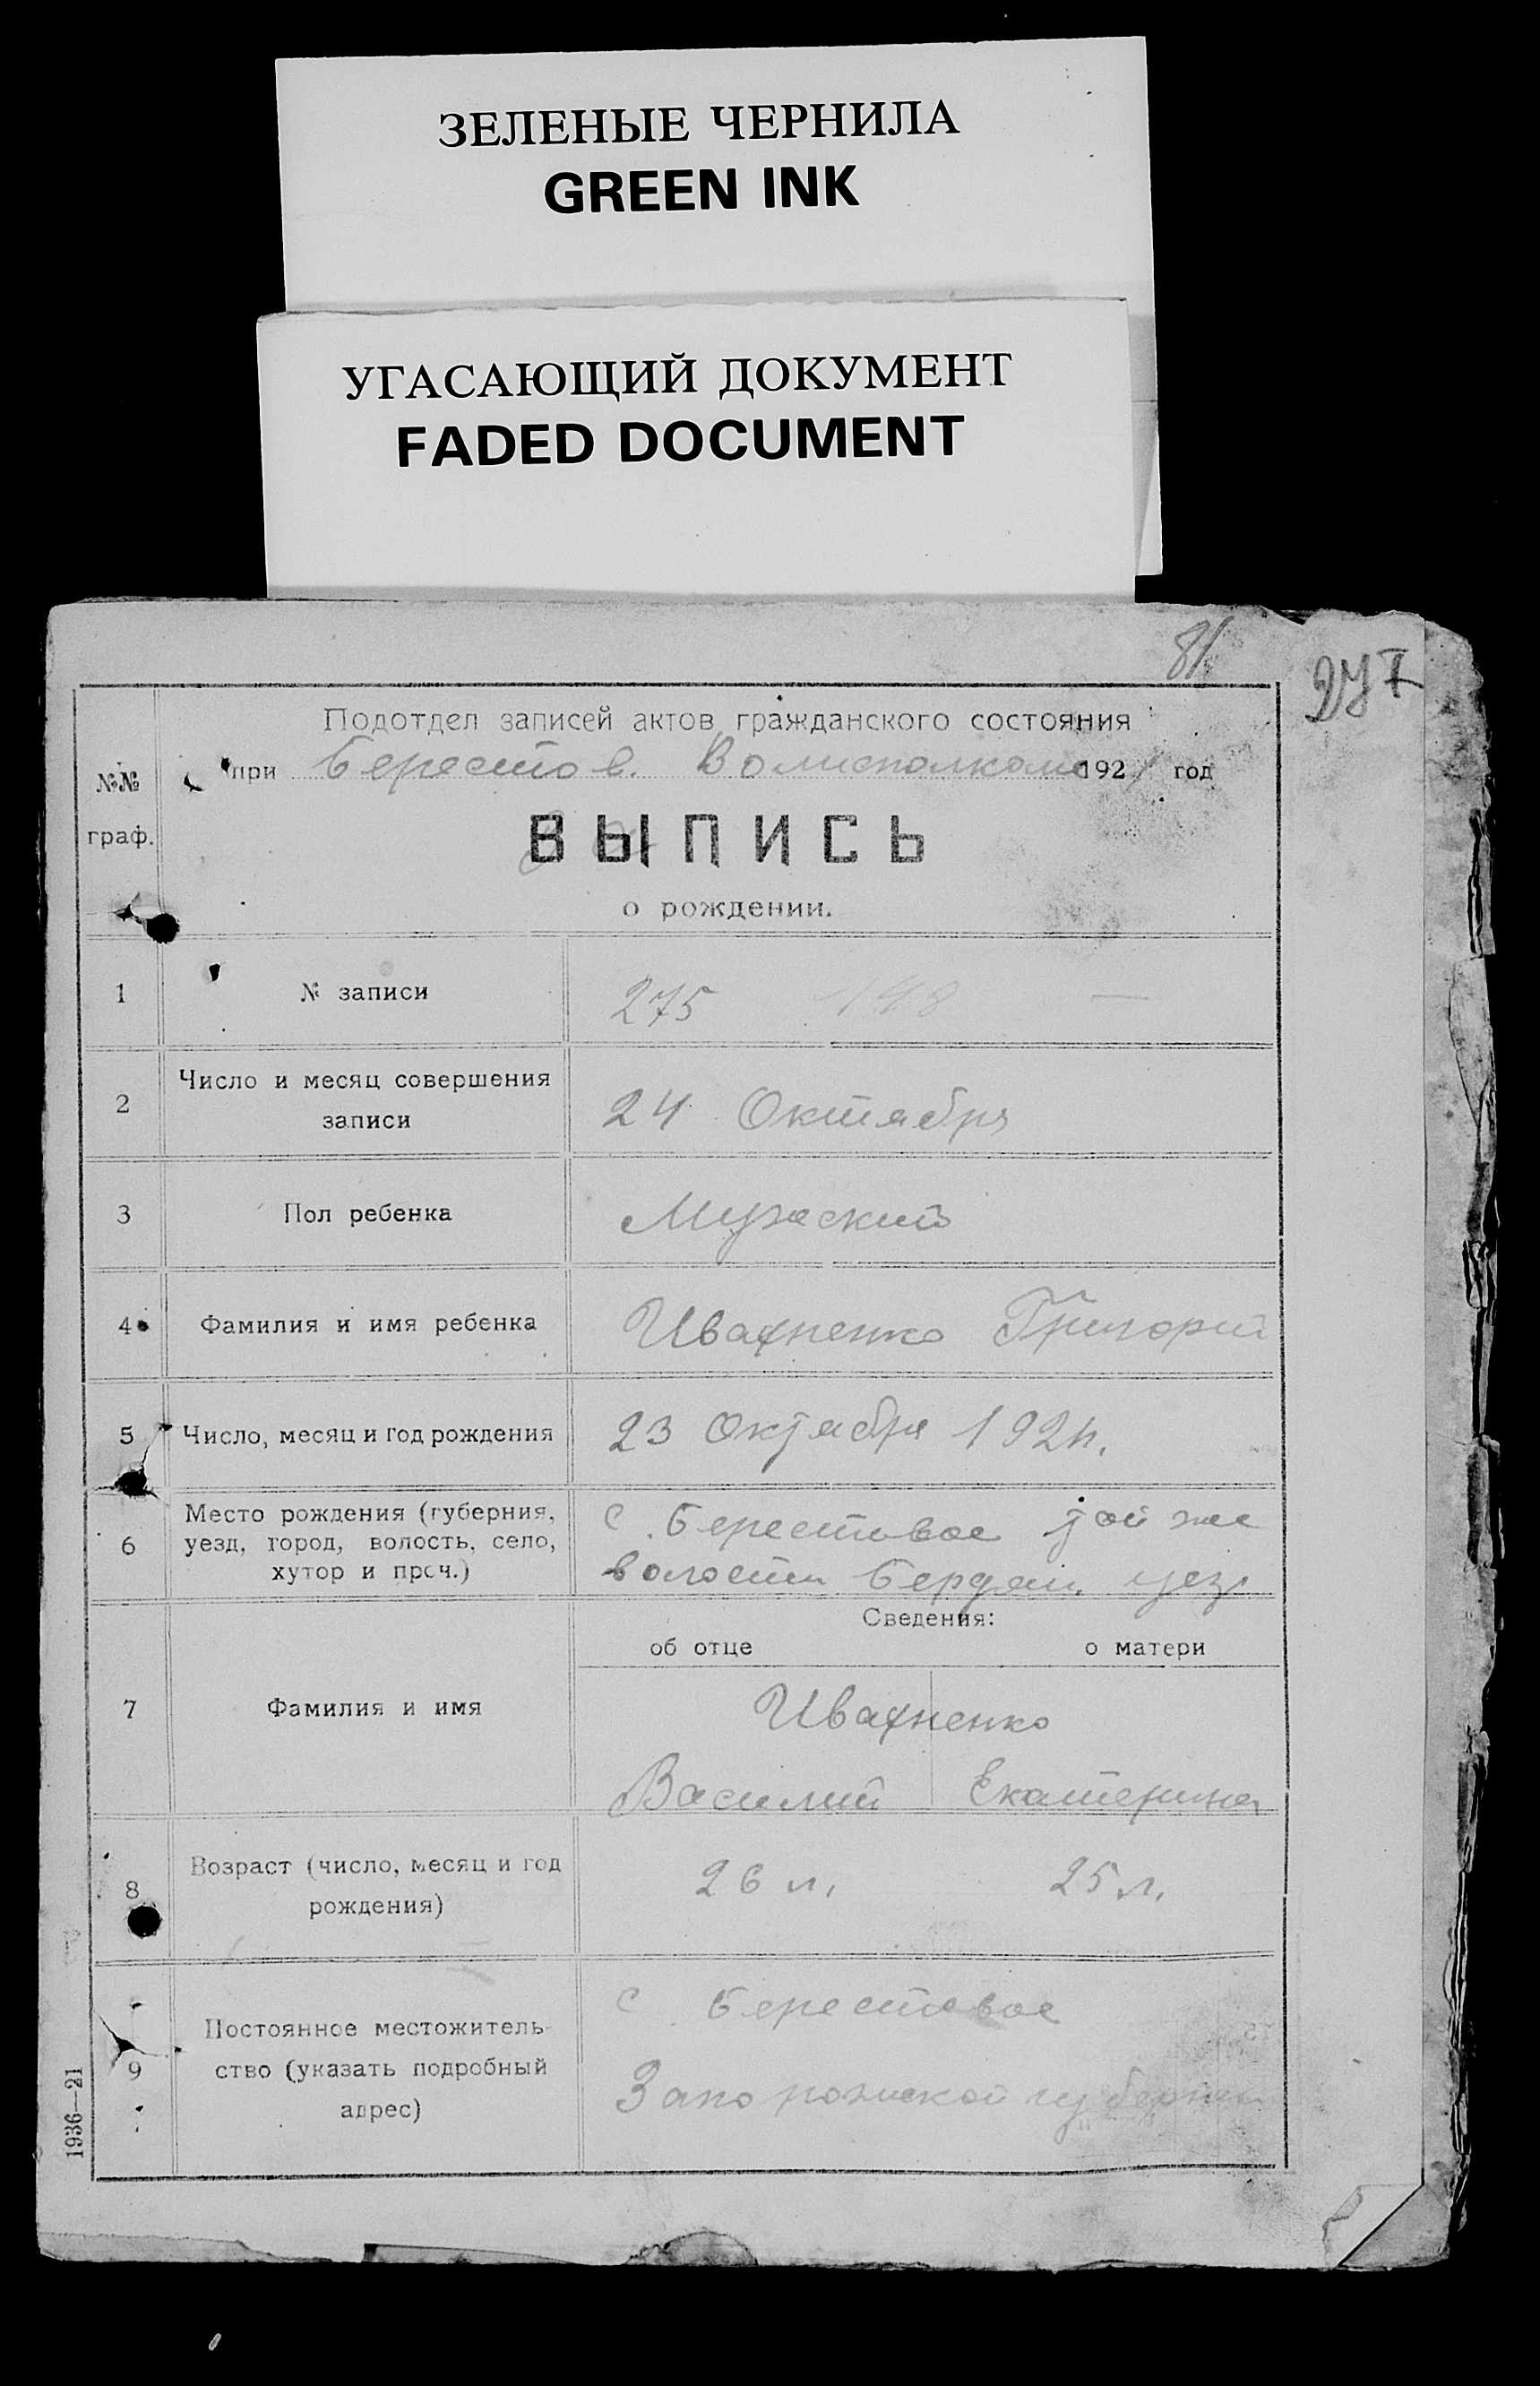 ЗЕЛЕНЫЕ ЧЕРНИЛА
GREEN INK
УГАСАЮЩИЙ ДОКУМЕНТ
FADED DOCUMENT
81
Подотдел записей актов гражданского состояния
№№ граф.
при Берестов. Волисполкоме 1921 год
ВЫПИСЬ
о рождении.
1 № записи 275 198 —
2 Число и месяц совершения
записи 24 Октября
3 Пол ребенка Мужеский
4 Фамилия и имя ребенка Ивахненко Григорий
5 Число, месяц и год рождения 23 Октября
6 Место рождения (губерния,
уезд, город, волость, село,
хутор и проч.)
с. Берестовое той же
волости Бердян. уез.
Сведения:
об отце о матери
7 Фамилия и имя
Ивахненко
Василий Екатерина
8 Возраст (число, месяц и год
рождения)
26 л. 25 л.
9 Постоянное местожитель-
ство (указать подробный
адрес)
с Берестовое
Запорожской губернии
1936—21